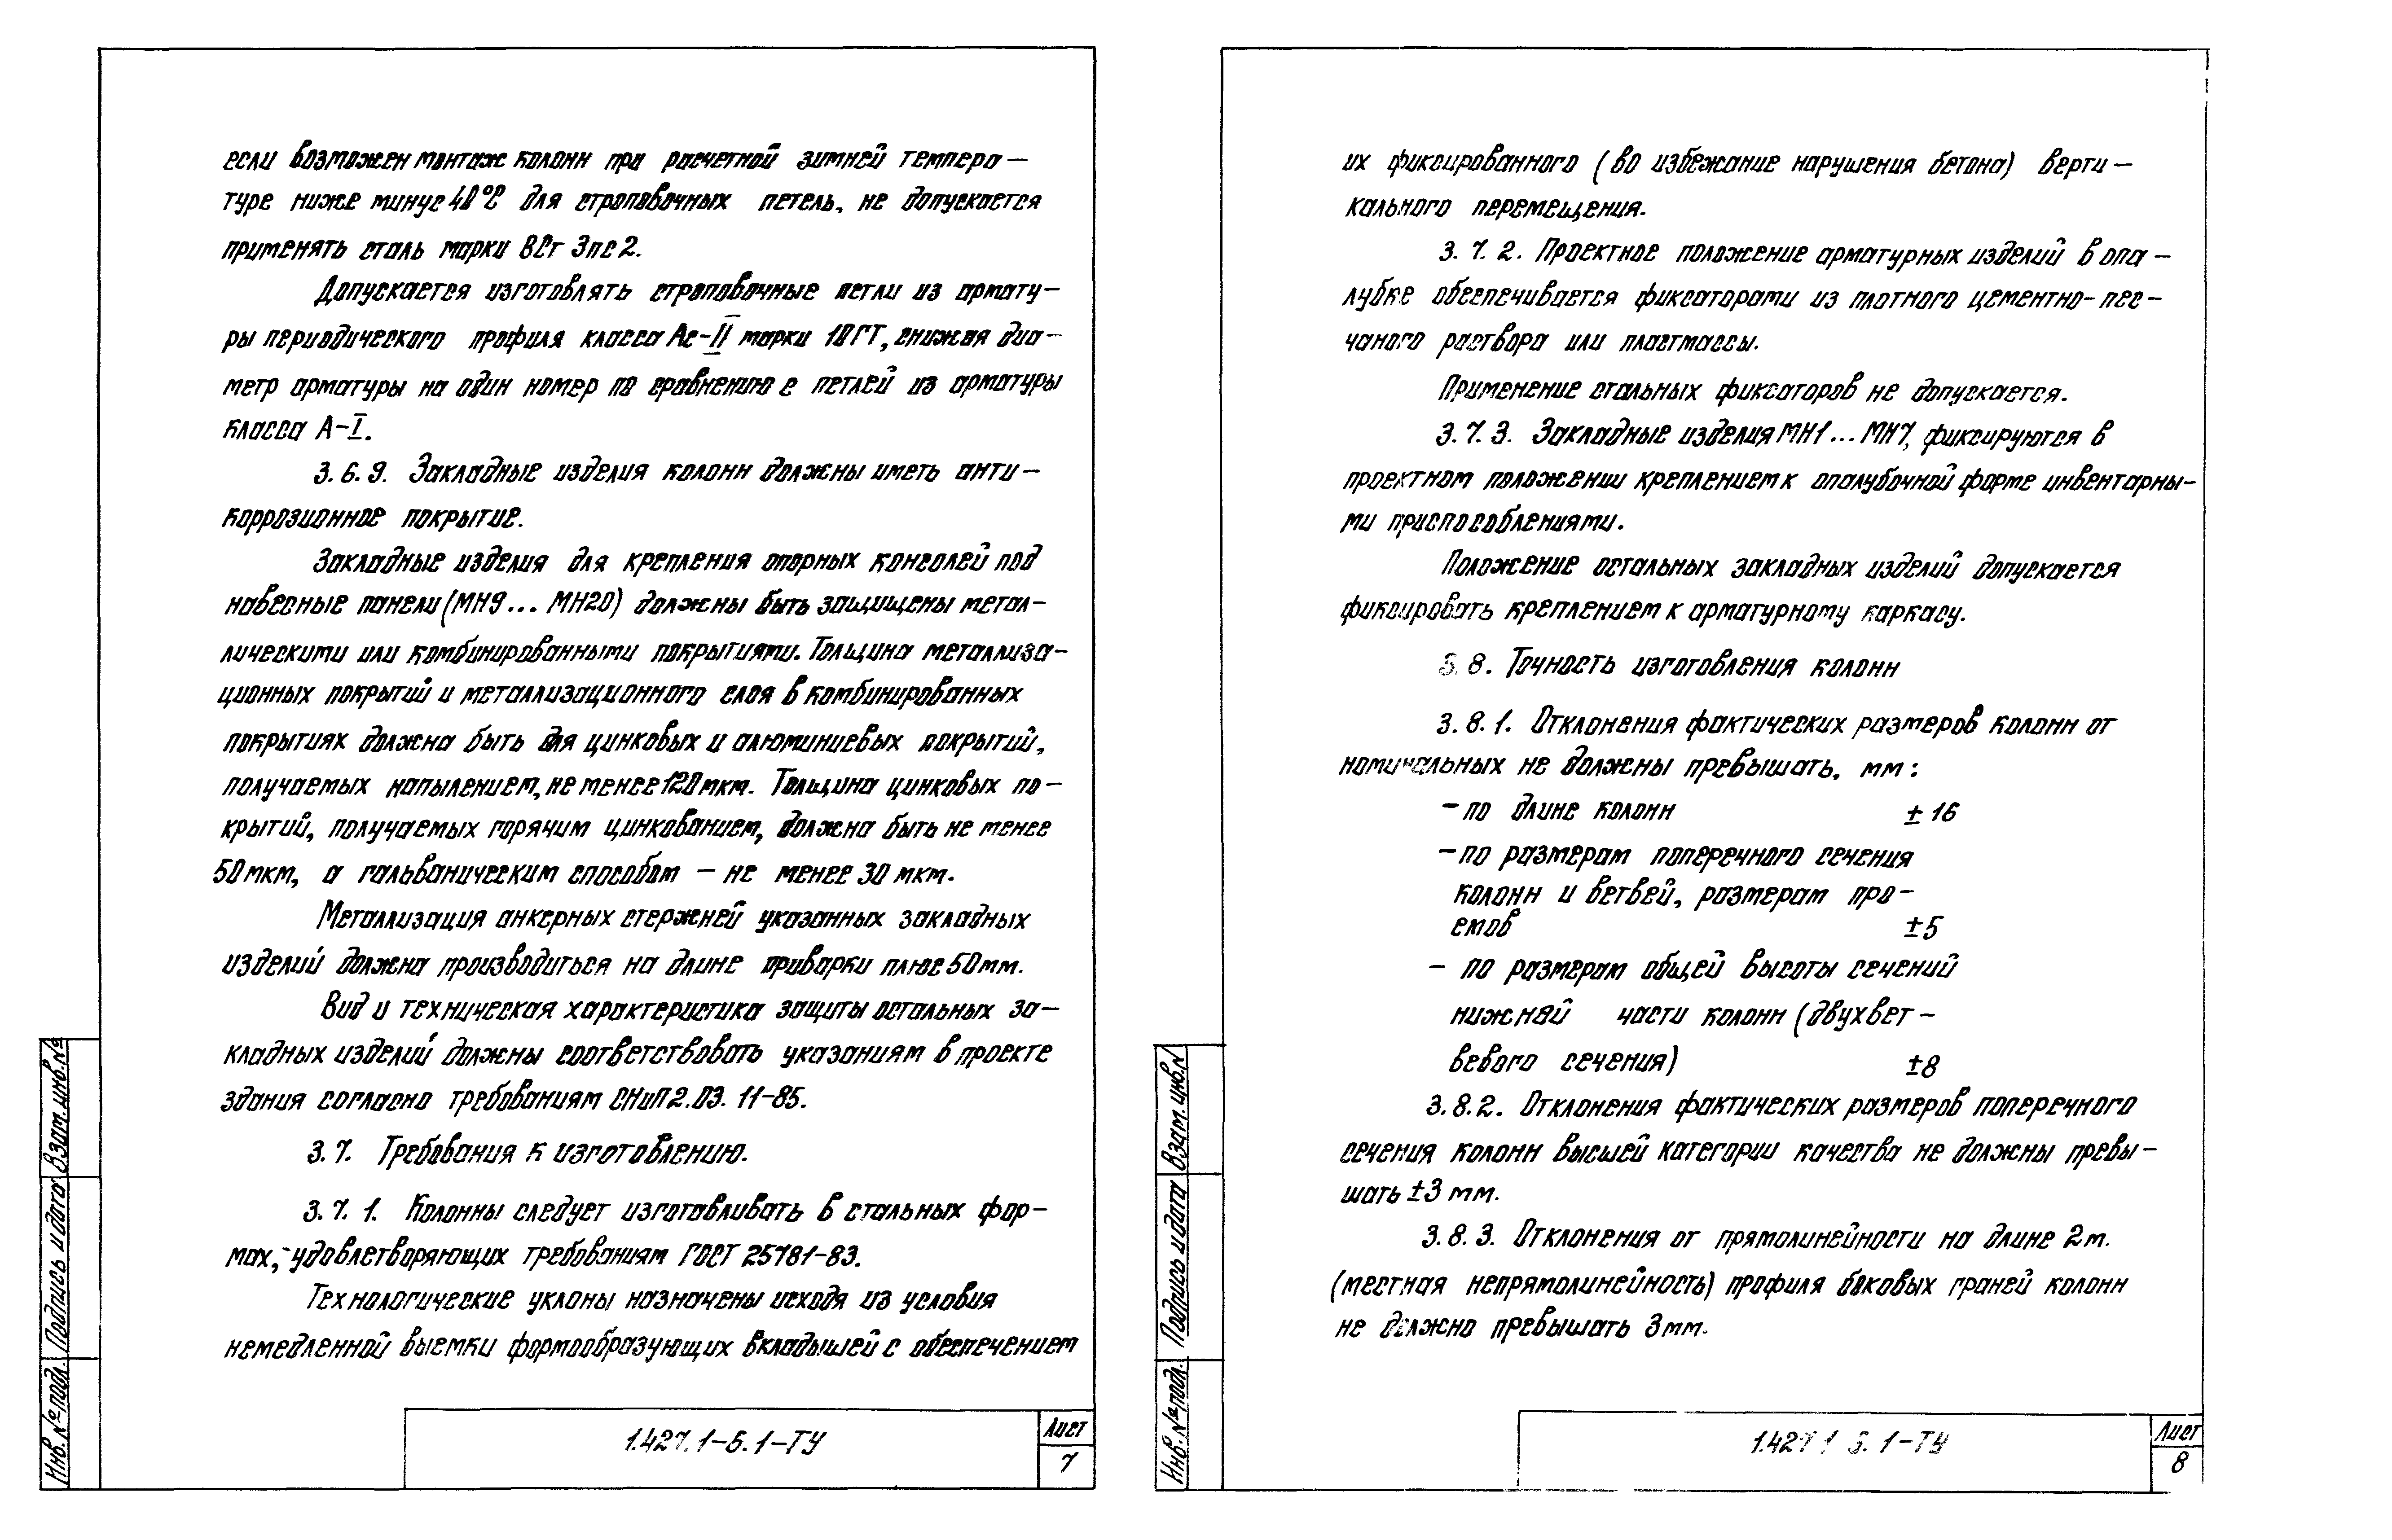 если возможен монтаж колонн при расчетной зимней темпера—
туре ниже минус 40°С для строповочных петель, не допускается
применять сталь марки ВСт 3пс2.
Допускается изготовлять строповочные петли из армату—
ры периодического профиля класса Ас-II марки 10ГТ, снижая диа—
метр арматуры на один номер по сравнению с петлей из арматуры
класса А-I.
3.6.9. Закладные изделия колонн должны иметь анти—
коррозионное покрытие.
Закладные изделия для крепления опорных консолей под
навесные панели (МН9... МН20) должны быть защищены метал—
лическими или комбинированными покрытиями. Толщина металлиза—
ционных покрытий и металлизационного слоя в комбинированных
покрытиях должна быть для цинковых и алюминиевых покрытий,
получаемых напылением, не менее 120 мкм. Толщина цинковых по—
крытий, получаемых горячим цинкованием, должна быть не менее
50 мкм, а гальваническим способом — не менее 30 мкм.
Металлизация анкерных стержней указанных закладных
изделий должна производиться на длине приварки плюс 50мм.
Вид и техническая характеристика защиты остальных за—
кладных изделий должны соответствовать указаниям в проекте
здания согласно требованиям СНиП 2.03.11-85.
3.7. Требования к изготовлению.
3.7.1. Колонны следует изготавливать в стальных фор—
мах, удовлетворяющих требованиям ГОСТ 25781-83.
Технологические уклоны назначены исходя из условия
немедленной выемки формообразующих вкладышей с обеспечением
1.427.1-6.1-ТУ
Лист
7
Инв.№подл.
Подпись и дата
Взам.инв.№
их фиксированного (во избежание нарушения бетона) верти—
кального перемещения.
3.7.2. Проектное положение арматурных изделий в опа—
лубке обеспечивается фиксаторами из плотного цементно-пес—
чаного раствора или пластмассы.
Применение стальных фиксаторов не допускается.
3.7.3. Закладные изделия МН1... МН7, фиксируются в
проектном положении креплением к опалубочной форме инвентарны—
ми приспособлениями.
Положение остальных закладных изделий допускается
фиксировать креплением к арматурному каркасу.
3.8. Точность изготовления колонн
3.8.1. Отклонения фактических размеров колонн от
номинальных не должны превышать, мм:
— по длине колонн ±16
— по размерам поперечного сечения
колонн и ветвей, размерам про—
емов ±5
— по размерам общей высоты сечений
нижней части колонн (двухвет—
вевого сечения) ±8
3.8.2. Отклонения фактических размеров поперечного
сечения колонн высшей категории качества не должны превы—
шать ±3 мм.
3.8.3. Отклонения от прямолинейности на длине 2м.
(местная непрямолинейность) профиля боковых граней колонн
не должно превышать 3мм.
1.427.1 6.1-ТУ
Лист
8
Инв.№подл.
Подпись и дата
Взам.инв.N